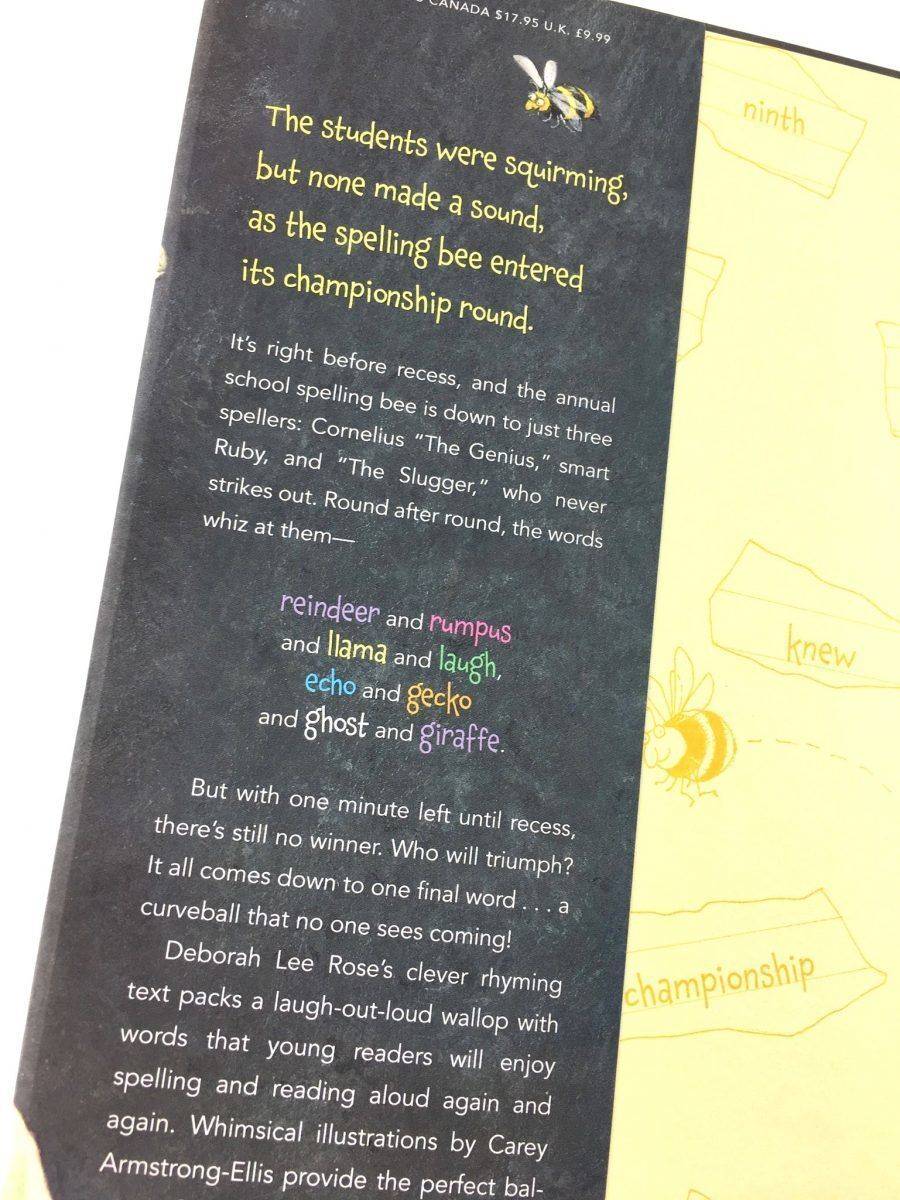 CANADA $17.95 U.K. £9.99
The students were squirming,
but none made a sound,
as the spelling bee entered
its championship round.
It's right before recess, and the annual
school spelling bee is down to just three
spellers: Cornelius "The Genius," smart
Ruby, and "The Slugger," who never
strikes out. Round after round, the words
whiz at them—
reindeer and rumpus
and llama and laugh,
echo and gecko
and ghost and giraffe.
But with one minute left until recess,
there's still no winner. Who will triumph?
It all comes down to one final word . . . a
curveball that no one sees coming!
Deborah Lee Rose's clever rhyming
text packs a laugh-out-loud wallop with
words that young readers will enjoy
spelling and reading aloud again and
again. Whimsical illustrations by Carey
Armstrong-Ellis provide the perfect bal-
ninth
knew
championship